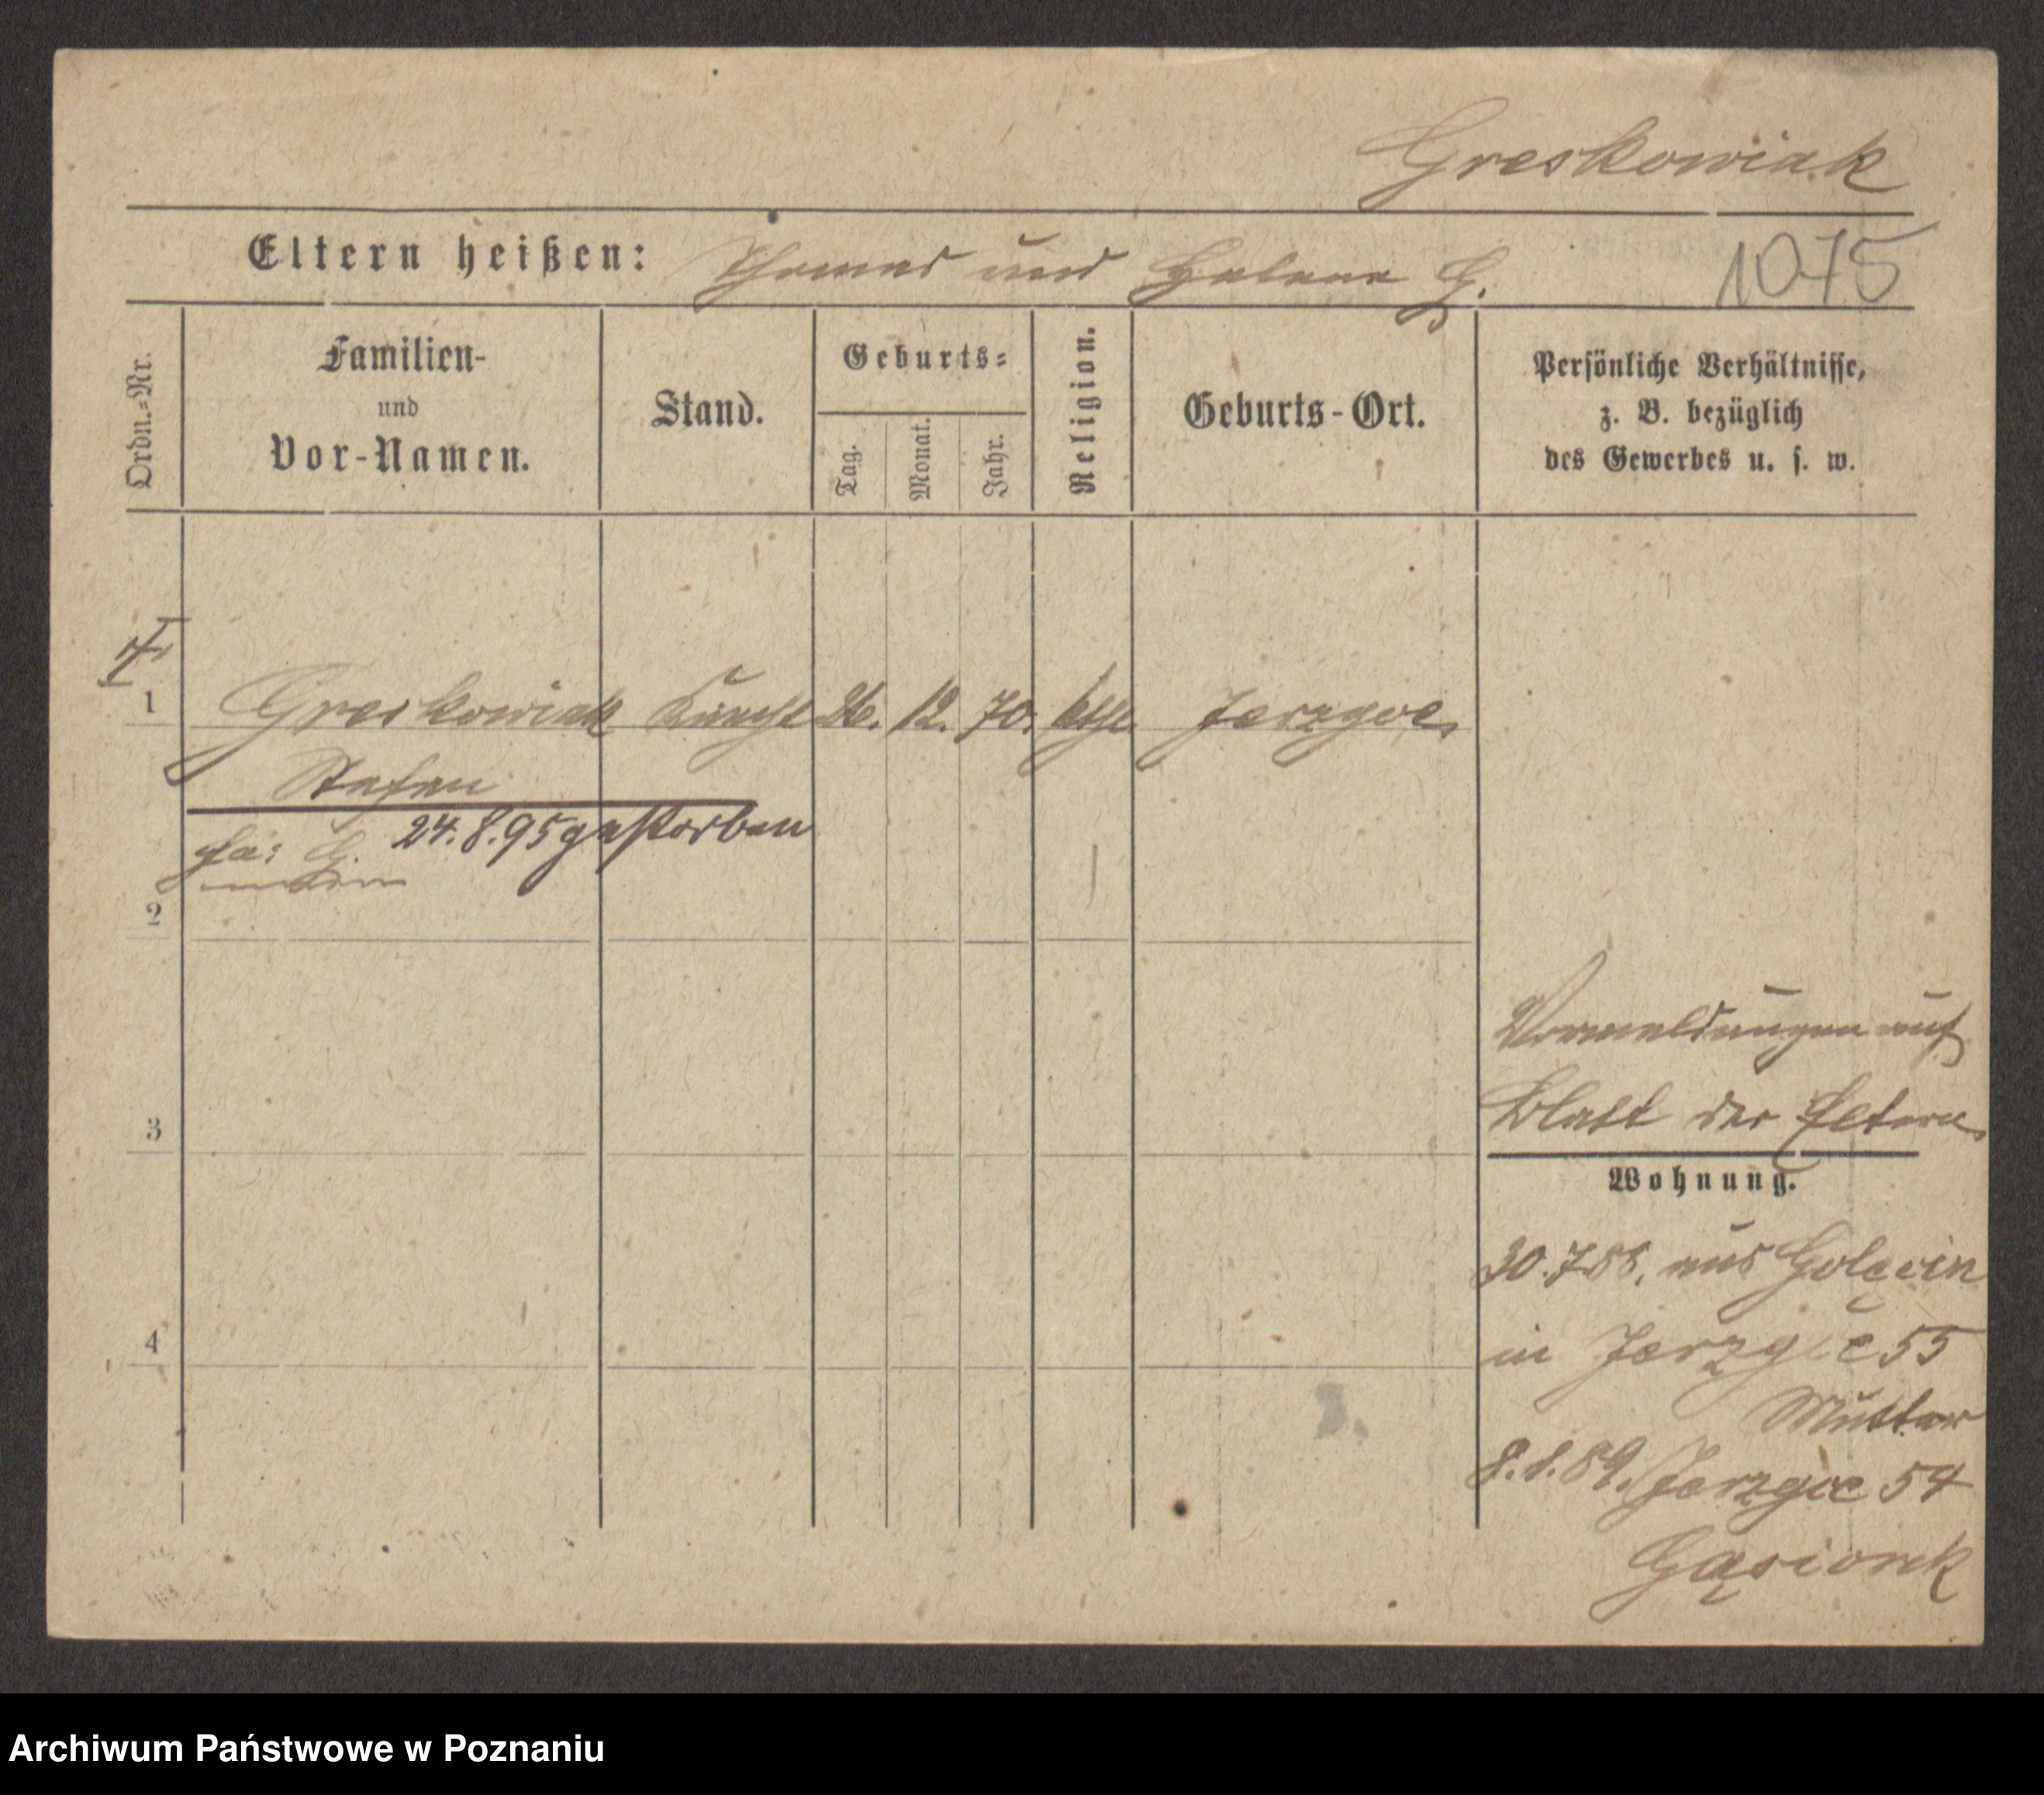 Greskowiak
Eltern heißen: Thomas und Helene G.
1075
Ordn.=Nr.
Familien-
und
Vor-Namen.
Stand.
Geburts=
Tag.
Monat.
Jahr.
Religion.
Geburts-Ort.
Persönliche Verhältnisse,
z. B. bezüglich
des Gewerbes u. s. w.
1 Greskowiak Knecht 26. 12. 70. kth. Jerzyce
Stefan
24.8.95 gestorben
2
Vormeldungen auf
Blatt der Eltern
3
Wohnung.
30.7.88. aus Golęcin
4
in Jerzyce 55
Mutter
8.1.89. Jerzyce 54
Gąsiorek
Archiwum Państwowe w Poznaniu